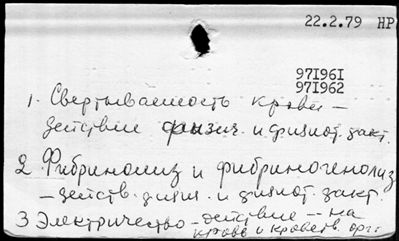 22.2.79 НР
97I96I
97I962
1. Свертываемость крови –
действие физич. и физиот. факт.
2 Фибринолиз и фибриногенолиз
– действ. физич. и физиот. факт.
3 Электричество – действие – на
крови и кроветв. орг.